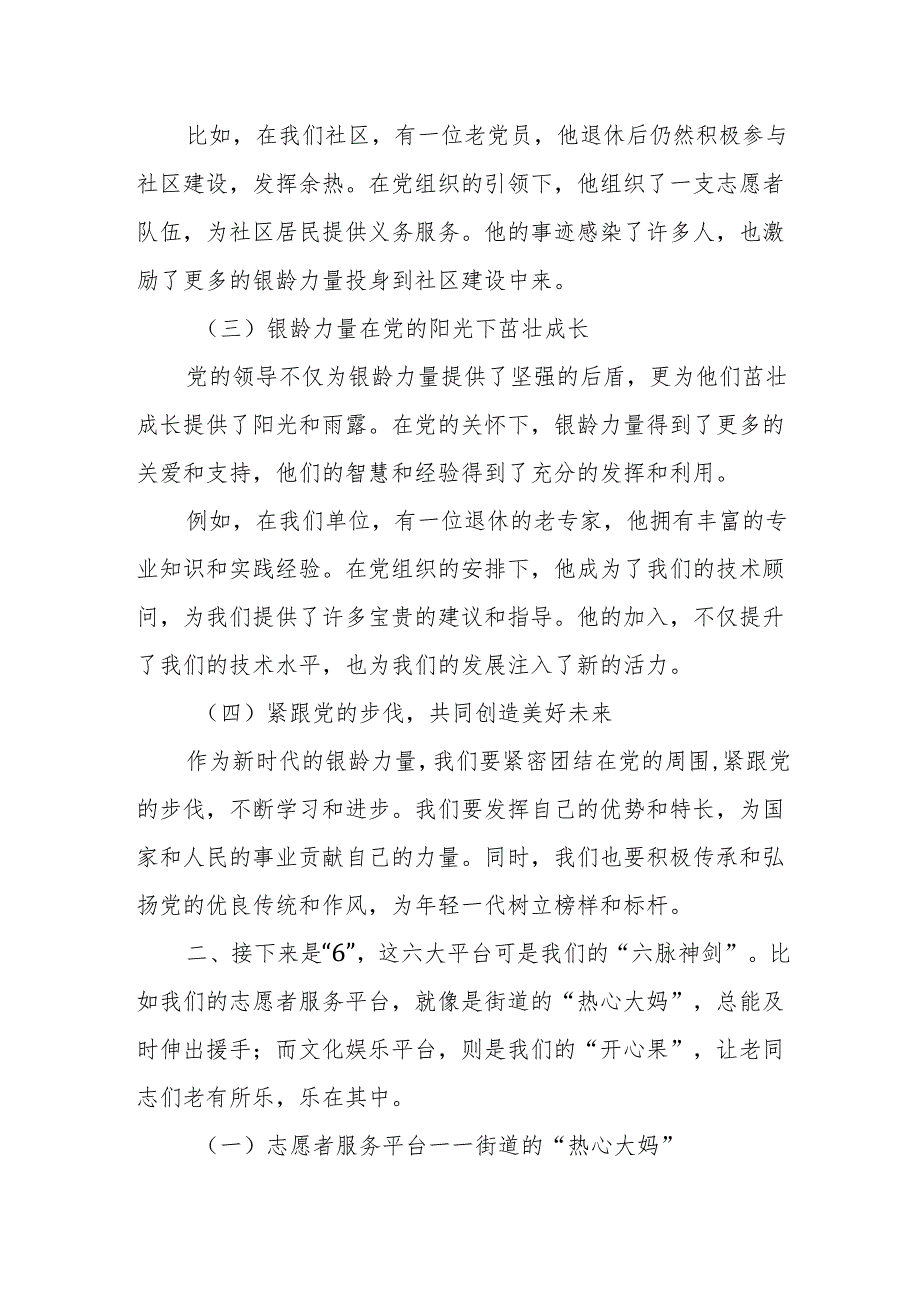 比如，在我们社区，有一位老党员，他退休后仍然积极参与
社区建设，发挥余热。在党组织的引领下，他组织了一支志愿者
队伍，为社区居民提供义务服务。他的事迹感染了许多人，也激
励了更多的银龄力量投身到社区建设中来。
（三）银龄力量在党的阳光下茁壮成长
党的领导不仅为银龄力量提供了坚强的后盾，更为他们茁壮
成长提供了阳光和雨露。在党的关怀下，银龄力量得到了更多的
关爱和支持，他们的智慧和经验得到了充分的发挥和利用。
例如，在我们单位，有一位退休的老专家，他拥有丰富的专
业知识和实践经验。在党组织的安排下，他成为了我们的技术顾
问，为我们提供了许多宝贵的建议和指导。他的加入，不仅提升
了我们的技术水平，也为我们的发展注入了新的活力。
（四）紧跟党的步伐，共同创造美好未来
作为新时代的银龄力量，我们要紧密团结在党的周围,紧跟党
的步伐，不断学习和进步。我们要发挥自己的优势和特长，为国
家和人民的事业贡献自己的力量。同时，我们也要积极传承和弘
扬党的优良传统和作风，为年轻一代树立榜样和标杆。
二、接下来是“6”，这六大平台可是我们的“六脉神剑”。比
如我们的志愿者服务平台，就像是街道的“热心大妈”，总能及
时伸出援手；而文化娱乐平台，则是我们的“开心果”，让老同
志们老有所乐，乐在其中。
（一）志愿者服务平台一一街道的“热心大妈”